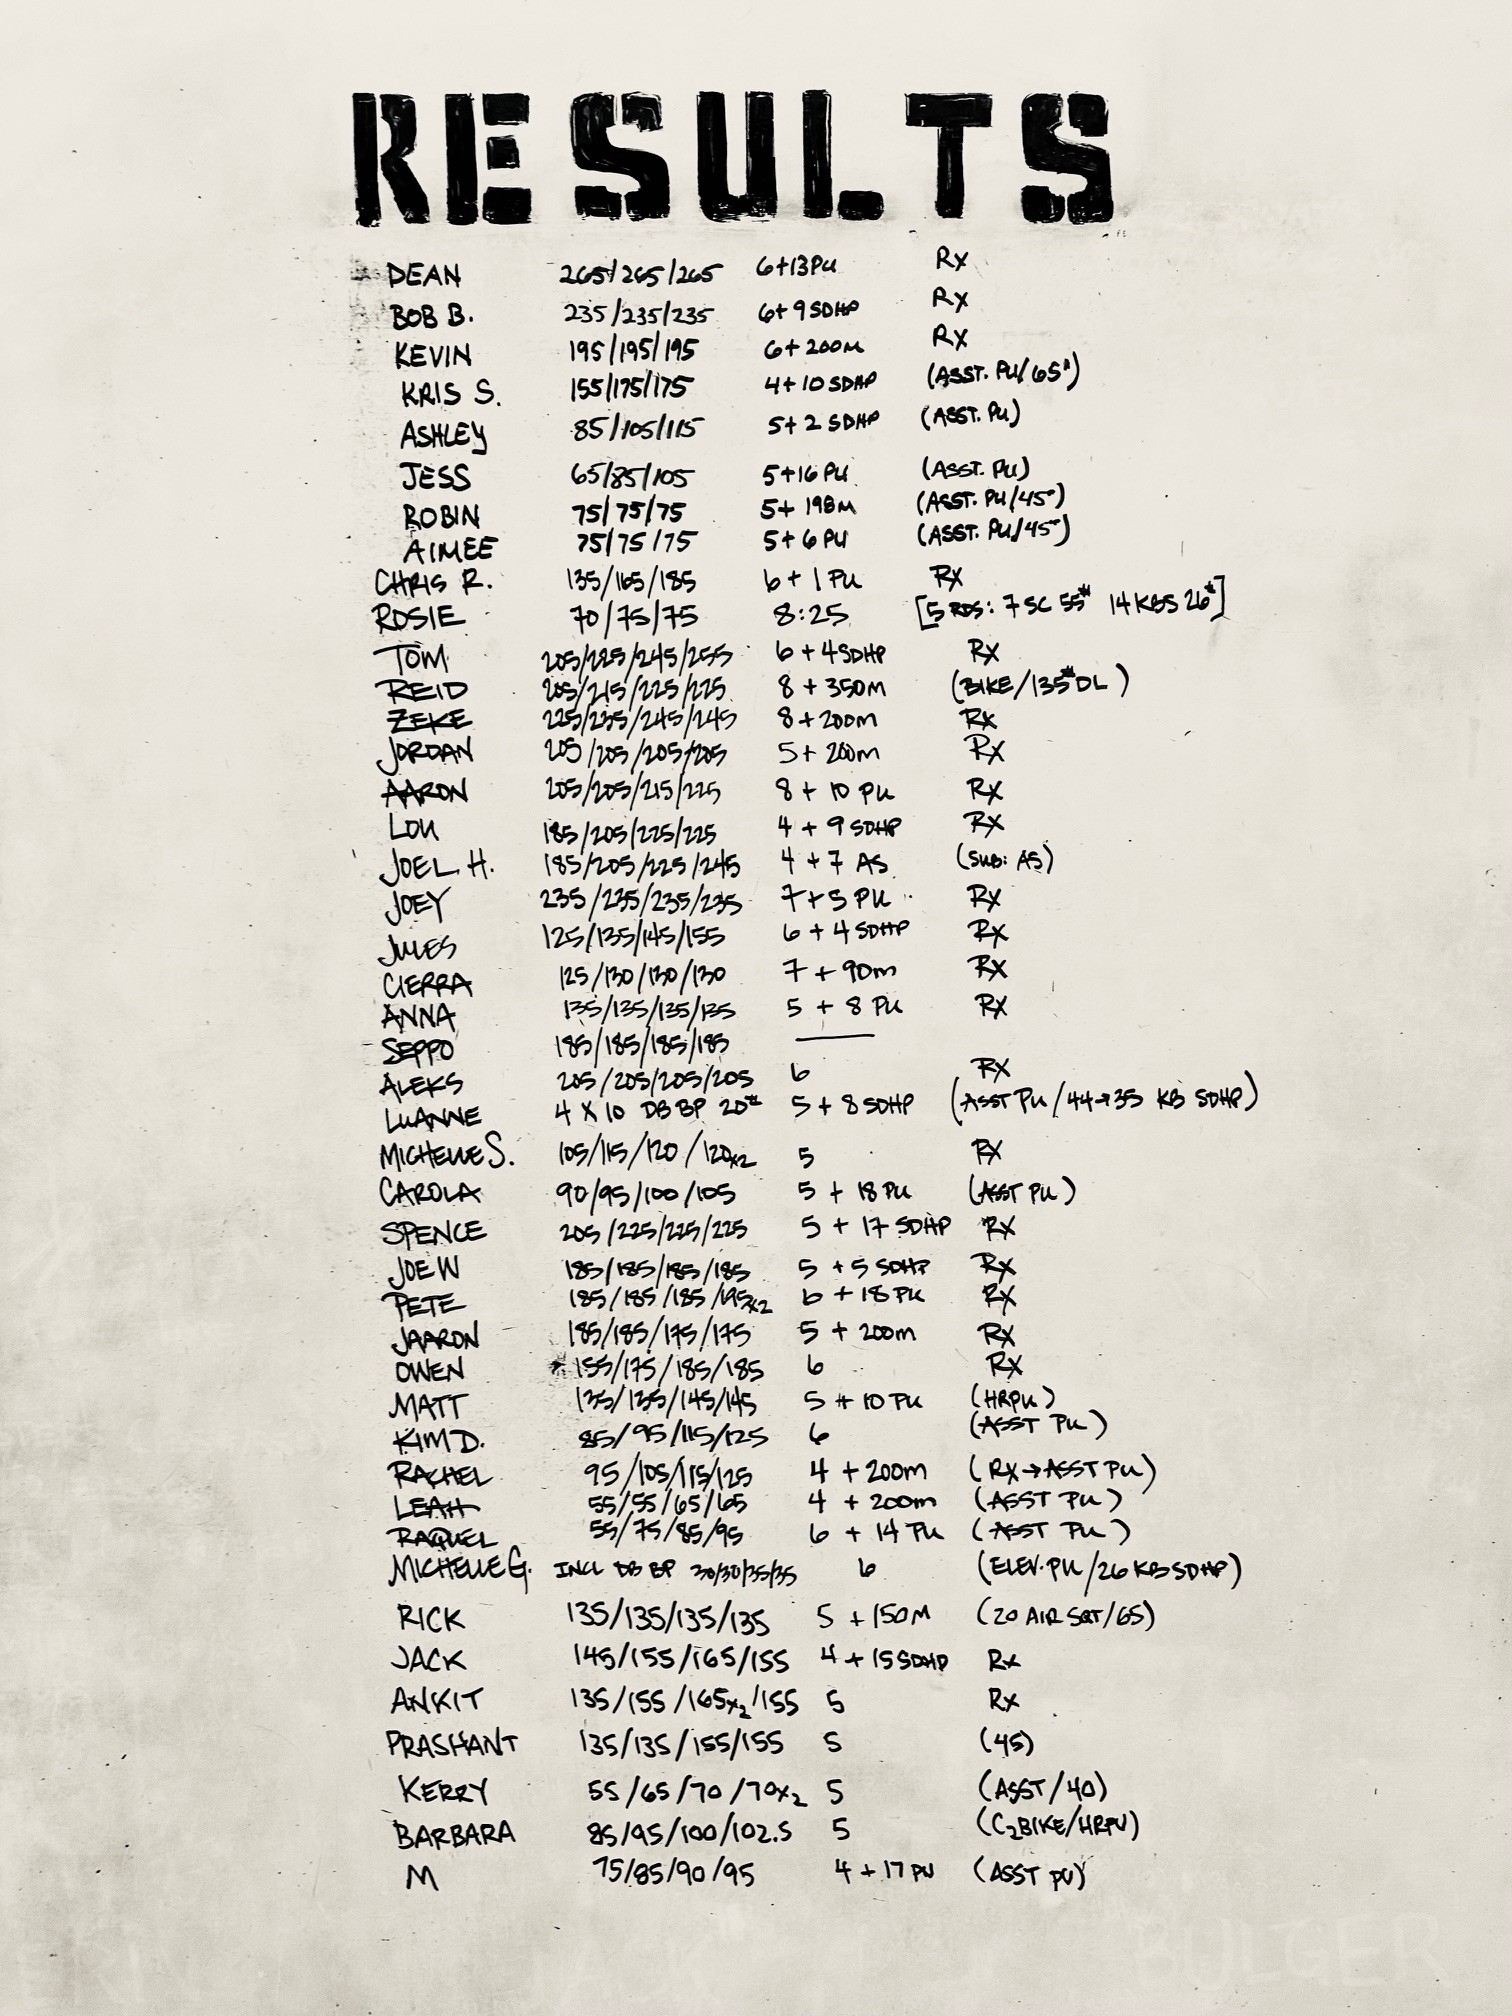 RESULTS
DEAN 265/265/265 6+13PU Rx
BOB B. 235/235/235 6+9 SDHP Rx
KEVIN 195/195/195 6+200M Rx
KRIS S. 155/175/175 4+10 SDHP (ASST. PU/65#)
ASHLEY 85/105/115 5+2 SDHP (ASST. PU)
JESS 65/85/105 5+16 PU (ASST. PU)
ROBIN 75/75/75 5+ 198M (ASST. PU/45#)
AIMEE 75/75/75 5+6 PU (ASST. PU/45#)
CHRIS R. 135/165/185 6+1 PU Rx
ROSIE 70/75/75 8:25 [5 RDS: 7 SC 55# 14 KBS 26#]
TOM 205/225/245/255 6+4SDHP Rx
REID 205/215/225/225 8+350M (BIKE/135#DL)
ZEKE 225/235/245/245 8+200m Rx
JORDAN 205/205/205/205 5+200m Rx
AARON 205/205/215/225 8+10 PU Rx
LOU 185/205/225/225 4+9 SDHP Rx
JOEL H. 185/205/225/245 4+7 AS (SUB: AS)
JOEY 235/235/235/235 7+5 PU Rx
JULES 125/135/145/155 6+4 SDHP Rx
CIERRA 125/130/130/130 7+90m Rx
ANNA 135/135/135/135 5+8 PU Rx
SEPPO 185/185/185/185 —
ALEKS 205/205/205/205 6 Rx
LUANNE 4 X 10 DB BP 20# 5+8 SDHP (ASST PU/44→35 KB SDHP)
MICHELLE S. 105/115/120/120x2 5 Rx
CAROLA 90/95/100/105 5+18 PU (ASST PU)
SPENCE 205/225/225/225 5+17 SDHP Rx
JOE W 185/185/185/185 5+5 SDHP Rx
PETE 185/185/185/195x2 6+18 PU Rx
JAARON 185/185/175/175 5+200m Rx
OWEN 155/175/185/185 6 Rx
MATT 135/135/145/145 5+10 PU (HRPU)
KIM D. 85/95/115/125 6 (ASST PU)
RACHEL 95/105/115/125 4+200m (RX→ASST PU)
LEAH 55/55/65/65 4+200m (ASST PU)
RAQUEL 55/75/85/95 6+14 PU (ASST PU)
MICHELLE G. INCL DB BP 30/30/35/35 6 (ELEV. PU/26 KB SDHP)
RICK 135/135/135/135 5+150M (20 AIR SQT/65)
JACK 145/155/165/155 4+15 SDHP Rx
ANKIT 135/155/165x2/155 5 Rx
PRASHANT 135/135/155/155 5 (45)
KERRY 55/65/70/70x2 5 (ASST/40)
BARBARA 85/95/100/102.5 5 (C2BIKE/HRPU)
M 75/85/90/95 4+17 PU (ASST PU)
BULGER